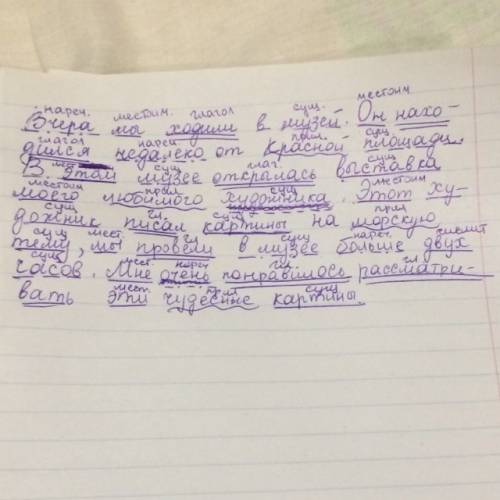 нареч. местоим. глагол сущ. местоим
Вчера мы ходили в музей. Он нахо-
глагол нареч. прил. сущ.
дился недалеко от Красной площади.
мест сущ глаг. сущ
В этом музее открылась выставка
местоим прил сущ местоим
моего любимого художника. Этот ху-
сущ гл. сущ прил
дожник писал картины на морскую
сущ мест гл сущ нареч.
тему, мы провели в музее больше двух
сущ мест нареч гл гл
часов. Мне очень понравилось рассматри-
мест. прил сущ
вать эти чудесные картины.